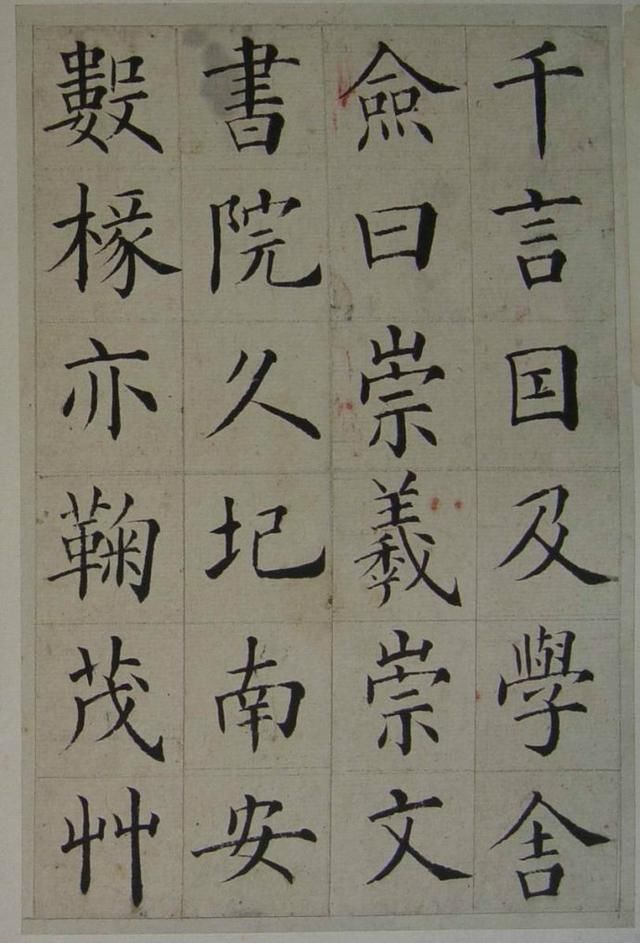 千言囙及學舍
僉曰崇羲崇文
書院久圮南安
數椽亦鞠茂艸